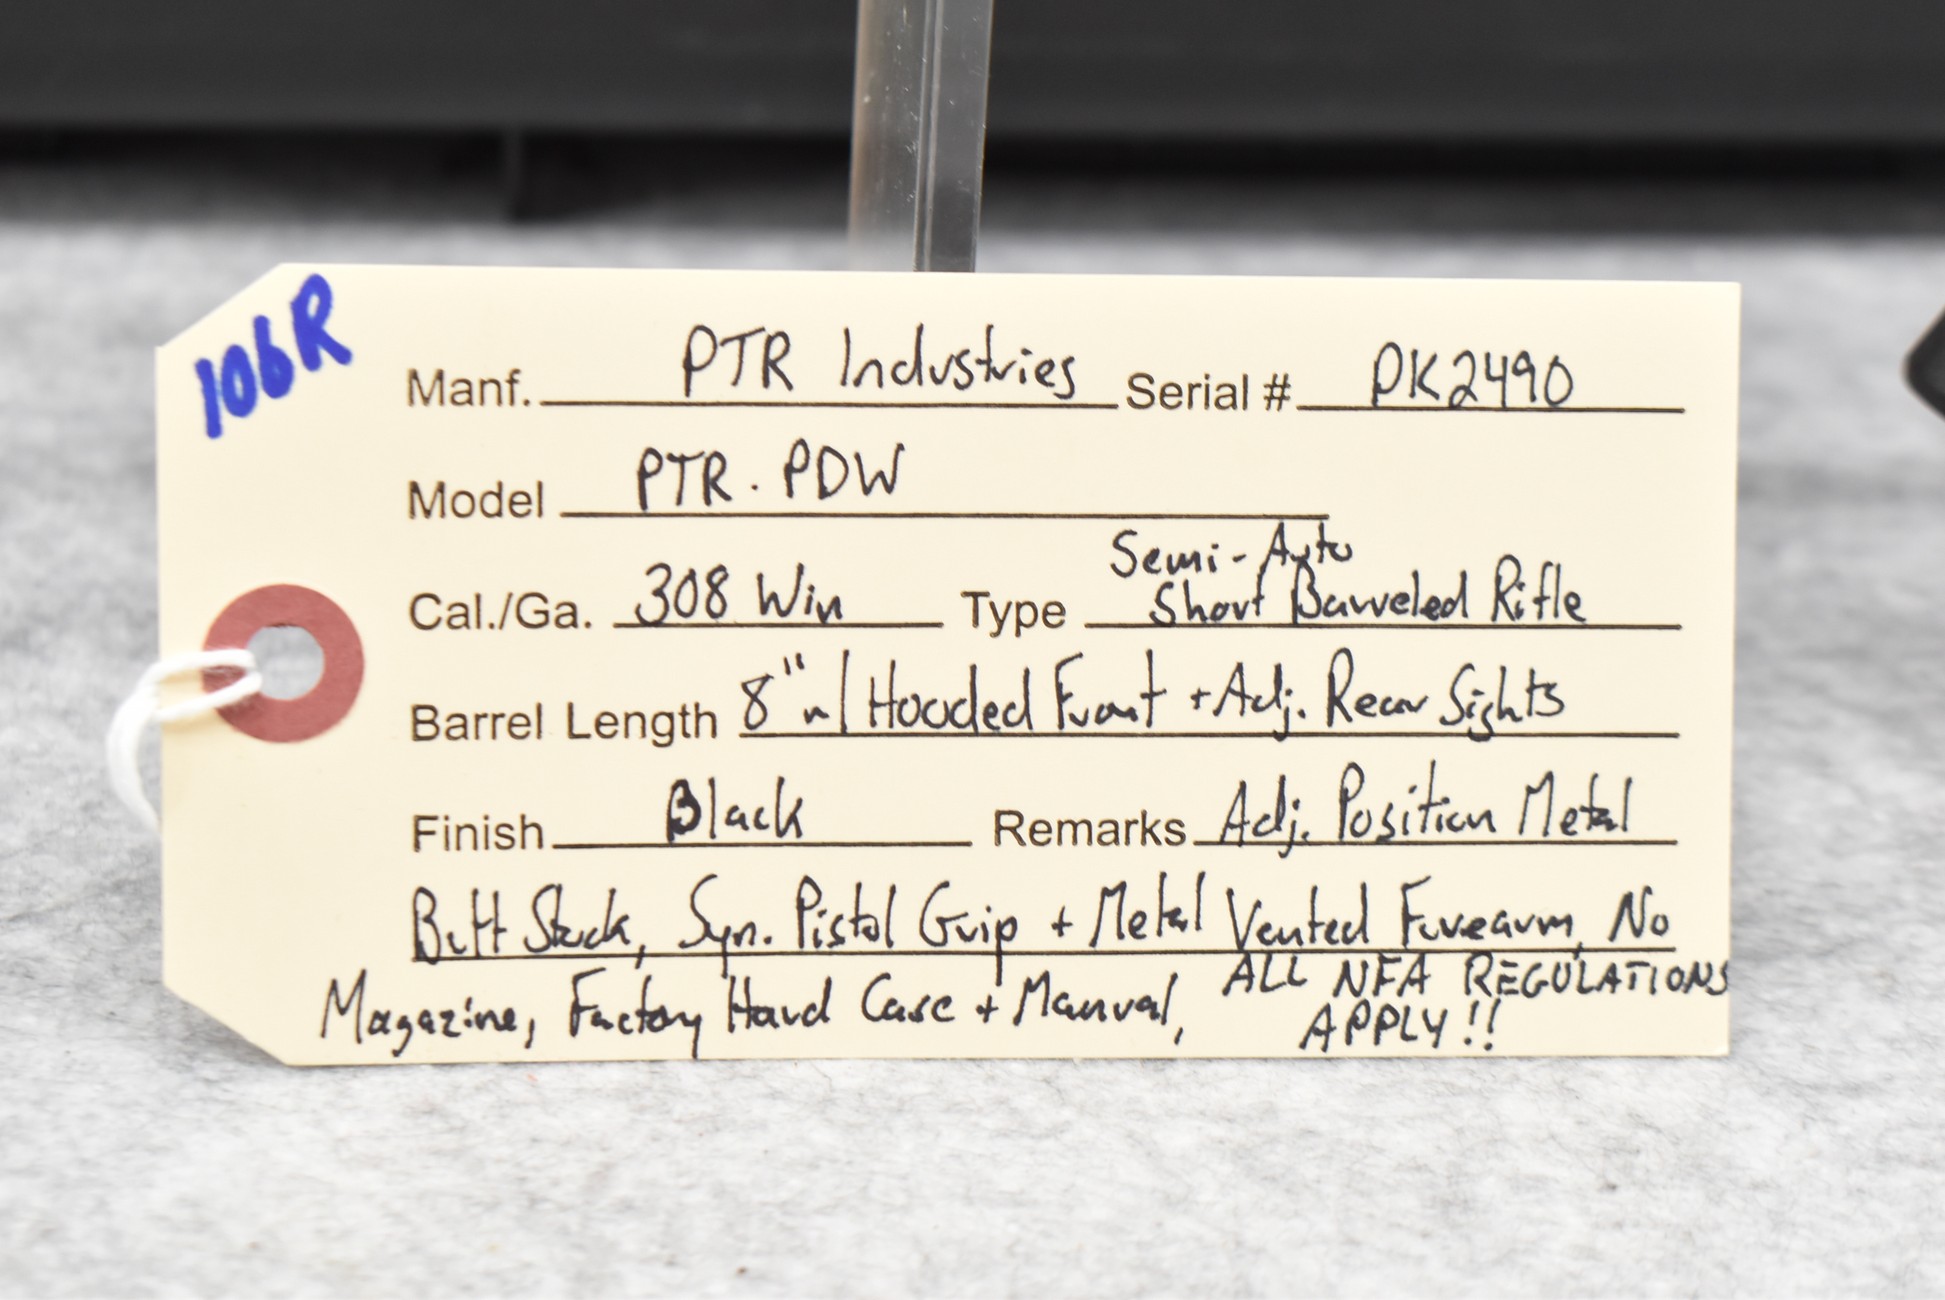 106R
Manf. PTR Industries Serial # PK2490
Model PTR. PDW
Semi-Auto
Cal./Ga. 308 Win Type Short Barreled Rifle
Barrel Length 8" w/ Hooded Front + Adj. Rear Sights
Finish Black Remarks Adj. Position Metal
Butt Stock, Syn. Pistol Grip + Metal Vented Forearm, No
Magazine, Factory Hard Case + Manual, ALL NFA REGULATIONS
APPLY!!